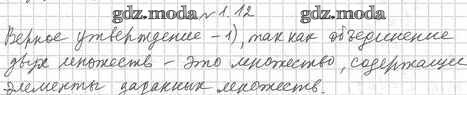 gdz.moda № 1.12 gdz.moda
Верное утверждение – 1), так как объединение
двух множеств – это множество, содержащее
элементы заданных множеств.